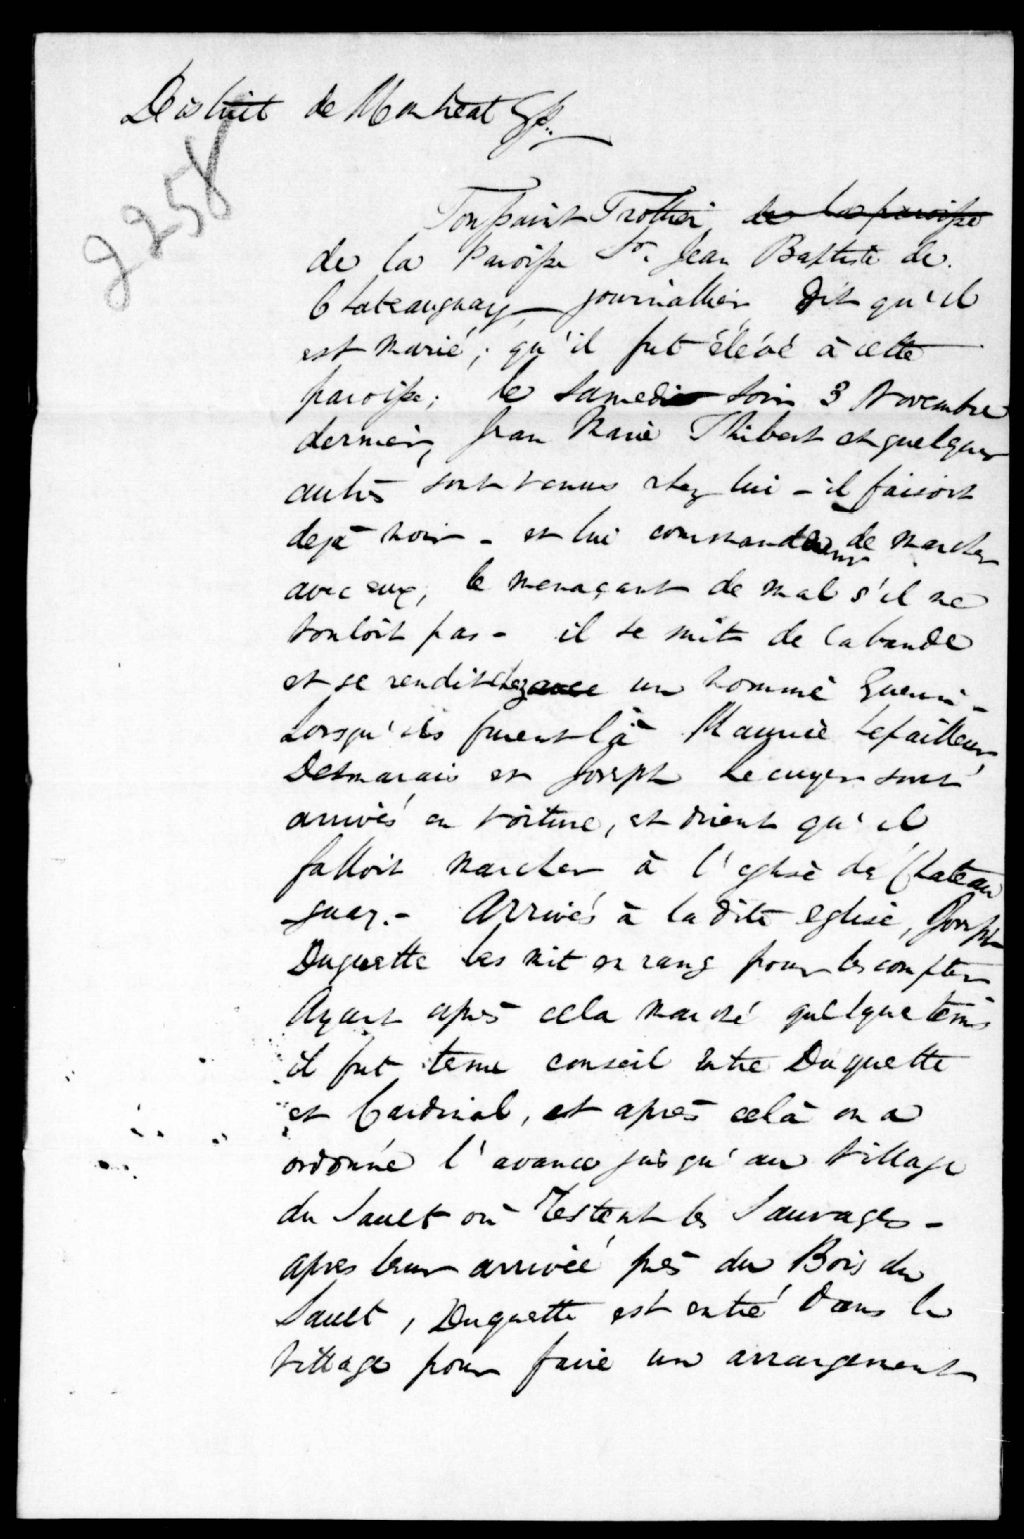 District de Montreal Ss.
2258
Toussaint Trottier de la paroisse
de la Paroisse St. Jean Baptiste de
Chateauguay, journallier dit qu'il
est marié; qu'il fut élévé à cette
paroisse; le Samedi soir 3 Novembre
dernier, Jean Marie Thibert et quelques
autres sont venus chez lui - il faisoit
dejà noir - et lui commandèrent de marcher
avec eux, le menaçant de mal s'il ne
vouloit pas - il se mit de la bande
et se rendit chez un nommé Guerin -
Lorsqu'ils furent là Maurice Lepailleur,
Desmarais et Joseph Lecuyer sont
arrivés en voiture, et dirent qu'il
falloit marcher à l'eglise de Chateau
guay. - Arrivés à la dite eglise, Joseph
Duquette les mit en rang pour les compter
Ayant après cela marché quelque tems
il fut tenu conseil entre Duquette
et Cardinal, et après celà on a
ordonné l'avance jusqu'au village
du Sault où restent les Sauvages -
apres leur arrivée près du Bois du
Sault, Duquette est entré dans le
village pour faire un arrangement